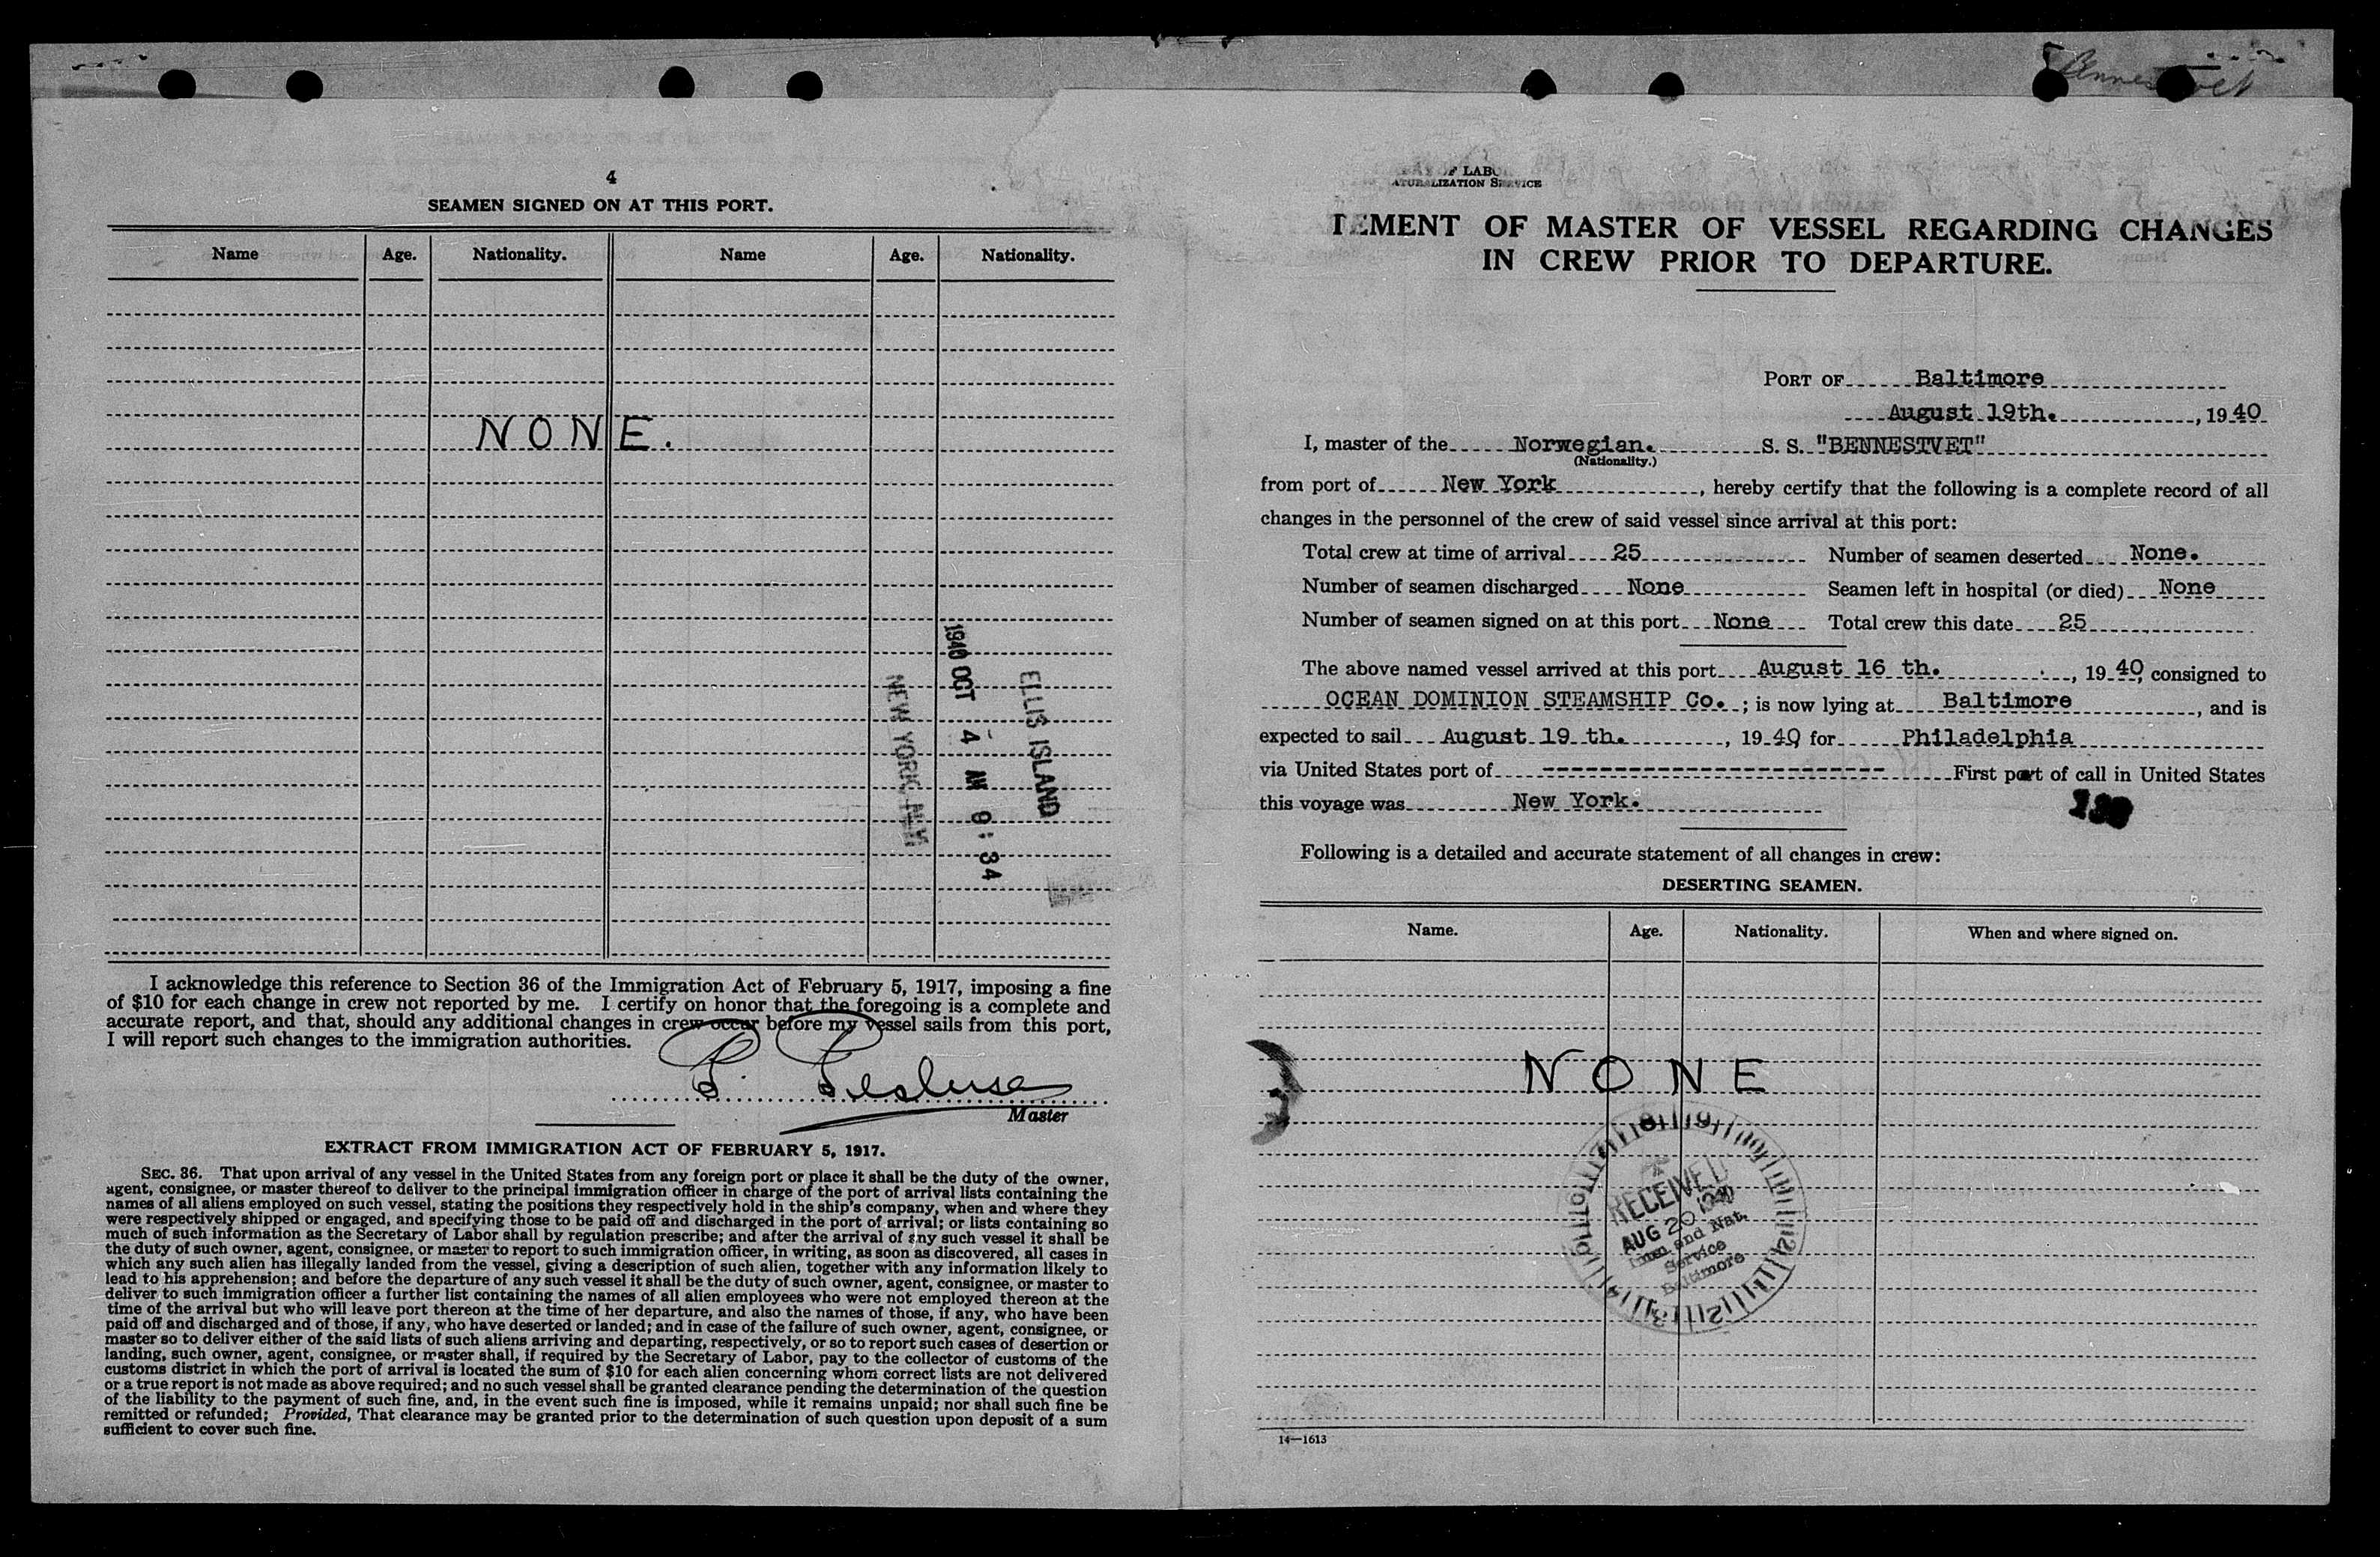 Bennestvet
4
SEAMEN SIGNED ON AT THIS PORT.
Name Age. Nationality. Name Age. Nationality.
NONE.
1940 OCT 4 AM 9:34
ELLIS ISLAND
NEW YORK
I acknowledge this reference to Section 36 of the Immigration Act of February 5, 1917, imposing a fine
of $10 for each change in crew not reported by me. I certify on honor that the foregoing is a complete and
accurate report, and that, should any additional changes in crew occur before my vessel sails from this port,
I will report such changes to the immigration authorities.
Master
EXTRACT FROM IMMIGRATION ACT OF FEBRUARY 5, 1917.
SEC. 36. That upon arrival of any vessel in the United States from any foreign port or place it shall be the duty of the owner,
agent, consignee, or master thereof to deliver to the principal immigration officer in charge of the port of arrival lists containing the
names of all aliens employed on such vessel, stating the positions they respectively hold in the ship's company, when and where they
were respectively shipped or engaged, and specifying those to be paid off and discharged in the port of arrival; or lists containing so
much of such information as the Secretary of Labor shall by regulation prescribe; and after the arrival of any such vessel it shall be
the duty of such owner, agent, consignee, or master to report to such immigration officer, in writing, as soon as discovered, all cases in
which any such alien has illegally landed from the vessel, giving a description of such alien, together with any information likely to
lead to his apprehension; and before the departure of any such vessel it shall be the duty of such owner, agent, consignee, or master to
deliver to such immigration officer a further list containing the names of all alien employees who were not employed thereon at the
time of the arrival but who will leave port thereon at the time of her departure, and also the names of those, if any, who have been
paid off and discharged and of those, if any, who have deserted or landed; and in case of the failure of such owner, agent, consignee, or
master so to deliver either of the said lists of such aliens arriving and departing, respectively, or so to report such cases of desertion or
landing, such owner, agent, consignee, or master shall, if required by the Secretary of Labor, pay to the collector of customs of the
customs district in which the port of arrival is located the sum of $10 for each alien concerning whom correct lists are not delivered
or a true report is not made as above required; and no such vessel shall be granted clearance pending the determination of the question
of the liability to the payment of such fine, and, in the event such fine is imposed, while it remains unpaid; nor shall such fine be
remitted or refunded; Provided, That clearance may be granted prior to the determination of such question upon deposit of a sum
sufficient to cover such fine.
OF LABO
ATURALIZATION SERVICE
TEMENT OF MASTER OF VESSEL REGARDING CHANGES
IN CREW PRIOR TO DEPARTURE.
PORT OF Baltimore
August 19th. , 1940
I, master of the Norwegian. S. S. "BENNESTVET"
(Nationality.)
from port of New York , hereby certify that the following is a complete record of all
changes in the personnel of the crew of said vessel since arrival at this port:
Total crew at time of arrival 25 Number of seamen deserted None.
Number of seamen discharged None Seamen left in hospital (or died) None
Number of seamen signed on at this port None Total crew this date 25
The above named vessel arrived at this port August 16 th. , 1940, consigned to
OCEAN DOMINION STEAMSHIP Co. ; is now lying at Baltimore , and is
expected to sail August 19 th. , 1940 for Philadelphia
via United States port of ------------------------ First port of call in United States
this voyage was New York.
Following is a detailed and accurate statement of all changes in crew:
DESERTING SEAMEN.
Name. Age. Nationality. When and where signed on.
NONE
RECEIVED
AUG 20 1940
Imm and Nat.
Service
Baltimore
14—1613